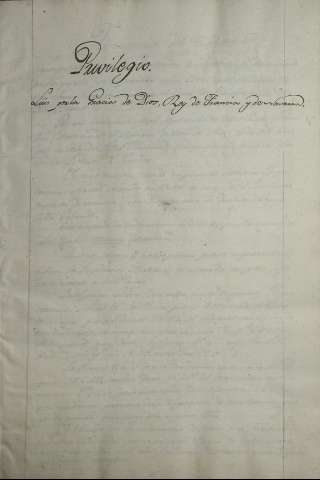 Privilegio.
Luis por la Gracia de Dios, Rey de Francia y de Navarra.